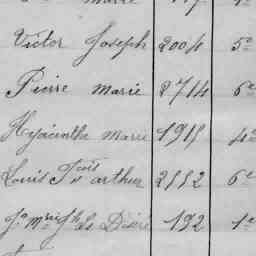 Marie
Victor Joseph 2004 5e
Pierre Marie 2714 6e
Hyacinthe Marie 1915 4e
Louis Fois arthur 2552 6e
Jn Mrie Jh Désiré 192 1e